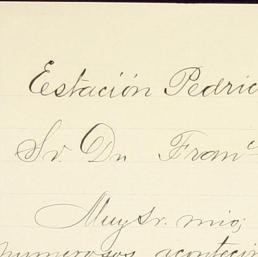 Estación Pedric
Sr. Dn Franc
Muy Sr. mio;
numerosos acontecim